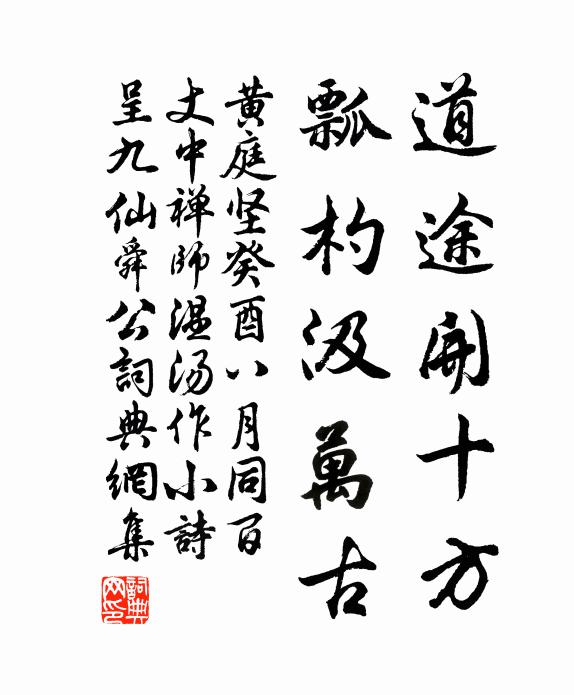 道途開十方
瓢杓汲萬古
黄庭坚癸酉八月同百
丈中禅师温汤作小詩
呈九仙舜公詞典網集
詞典網印